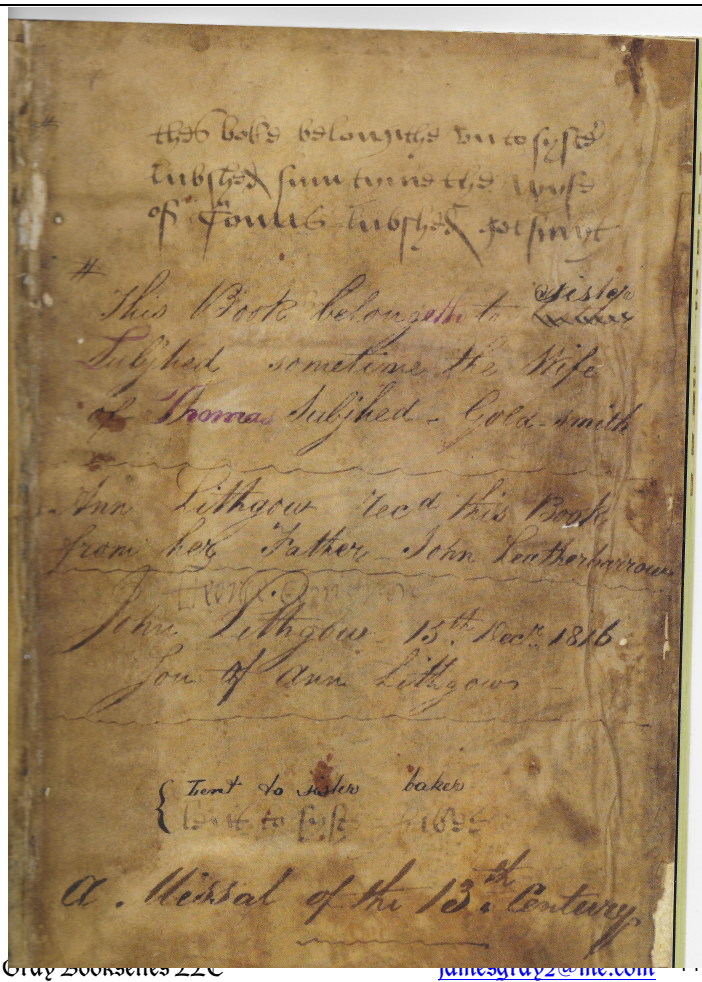 thes boke belongithe vnto syster
lubshed sum tyme the wyfe
of Tomas lubshed golsmyt
#
This Book belongeth to sister
Lubshed sometime the Wife
of Thomas Lubshed - Gold-smith
Ann Lithgow Rec.d this Book
from her Father - John Leatherbarrow
John Lithgow - 15th Decr. 1816
Son of Ann Lithgow -
Lent to sister baker
lent to syst
A. Missal of the 13.th Century
Gray Booksellers LLC jamesgray2@me.com